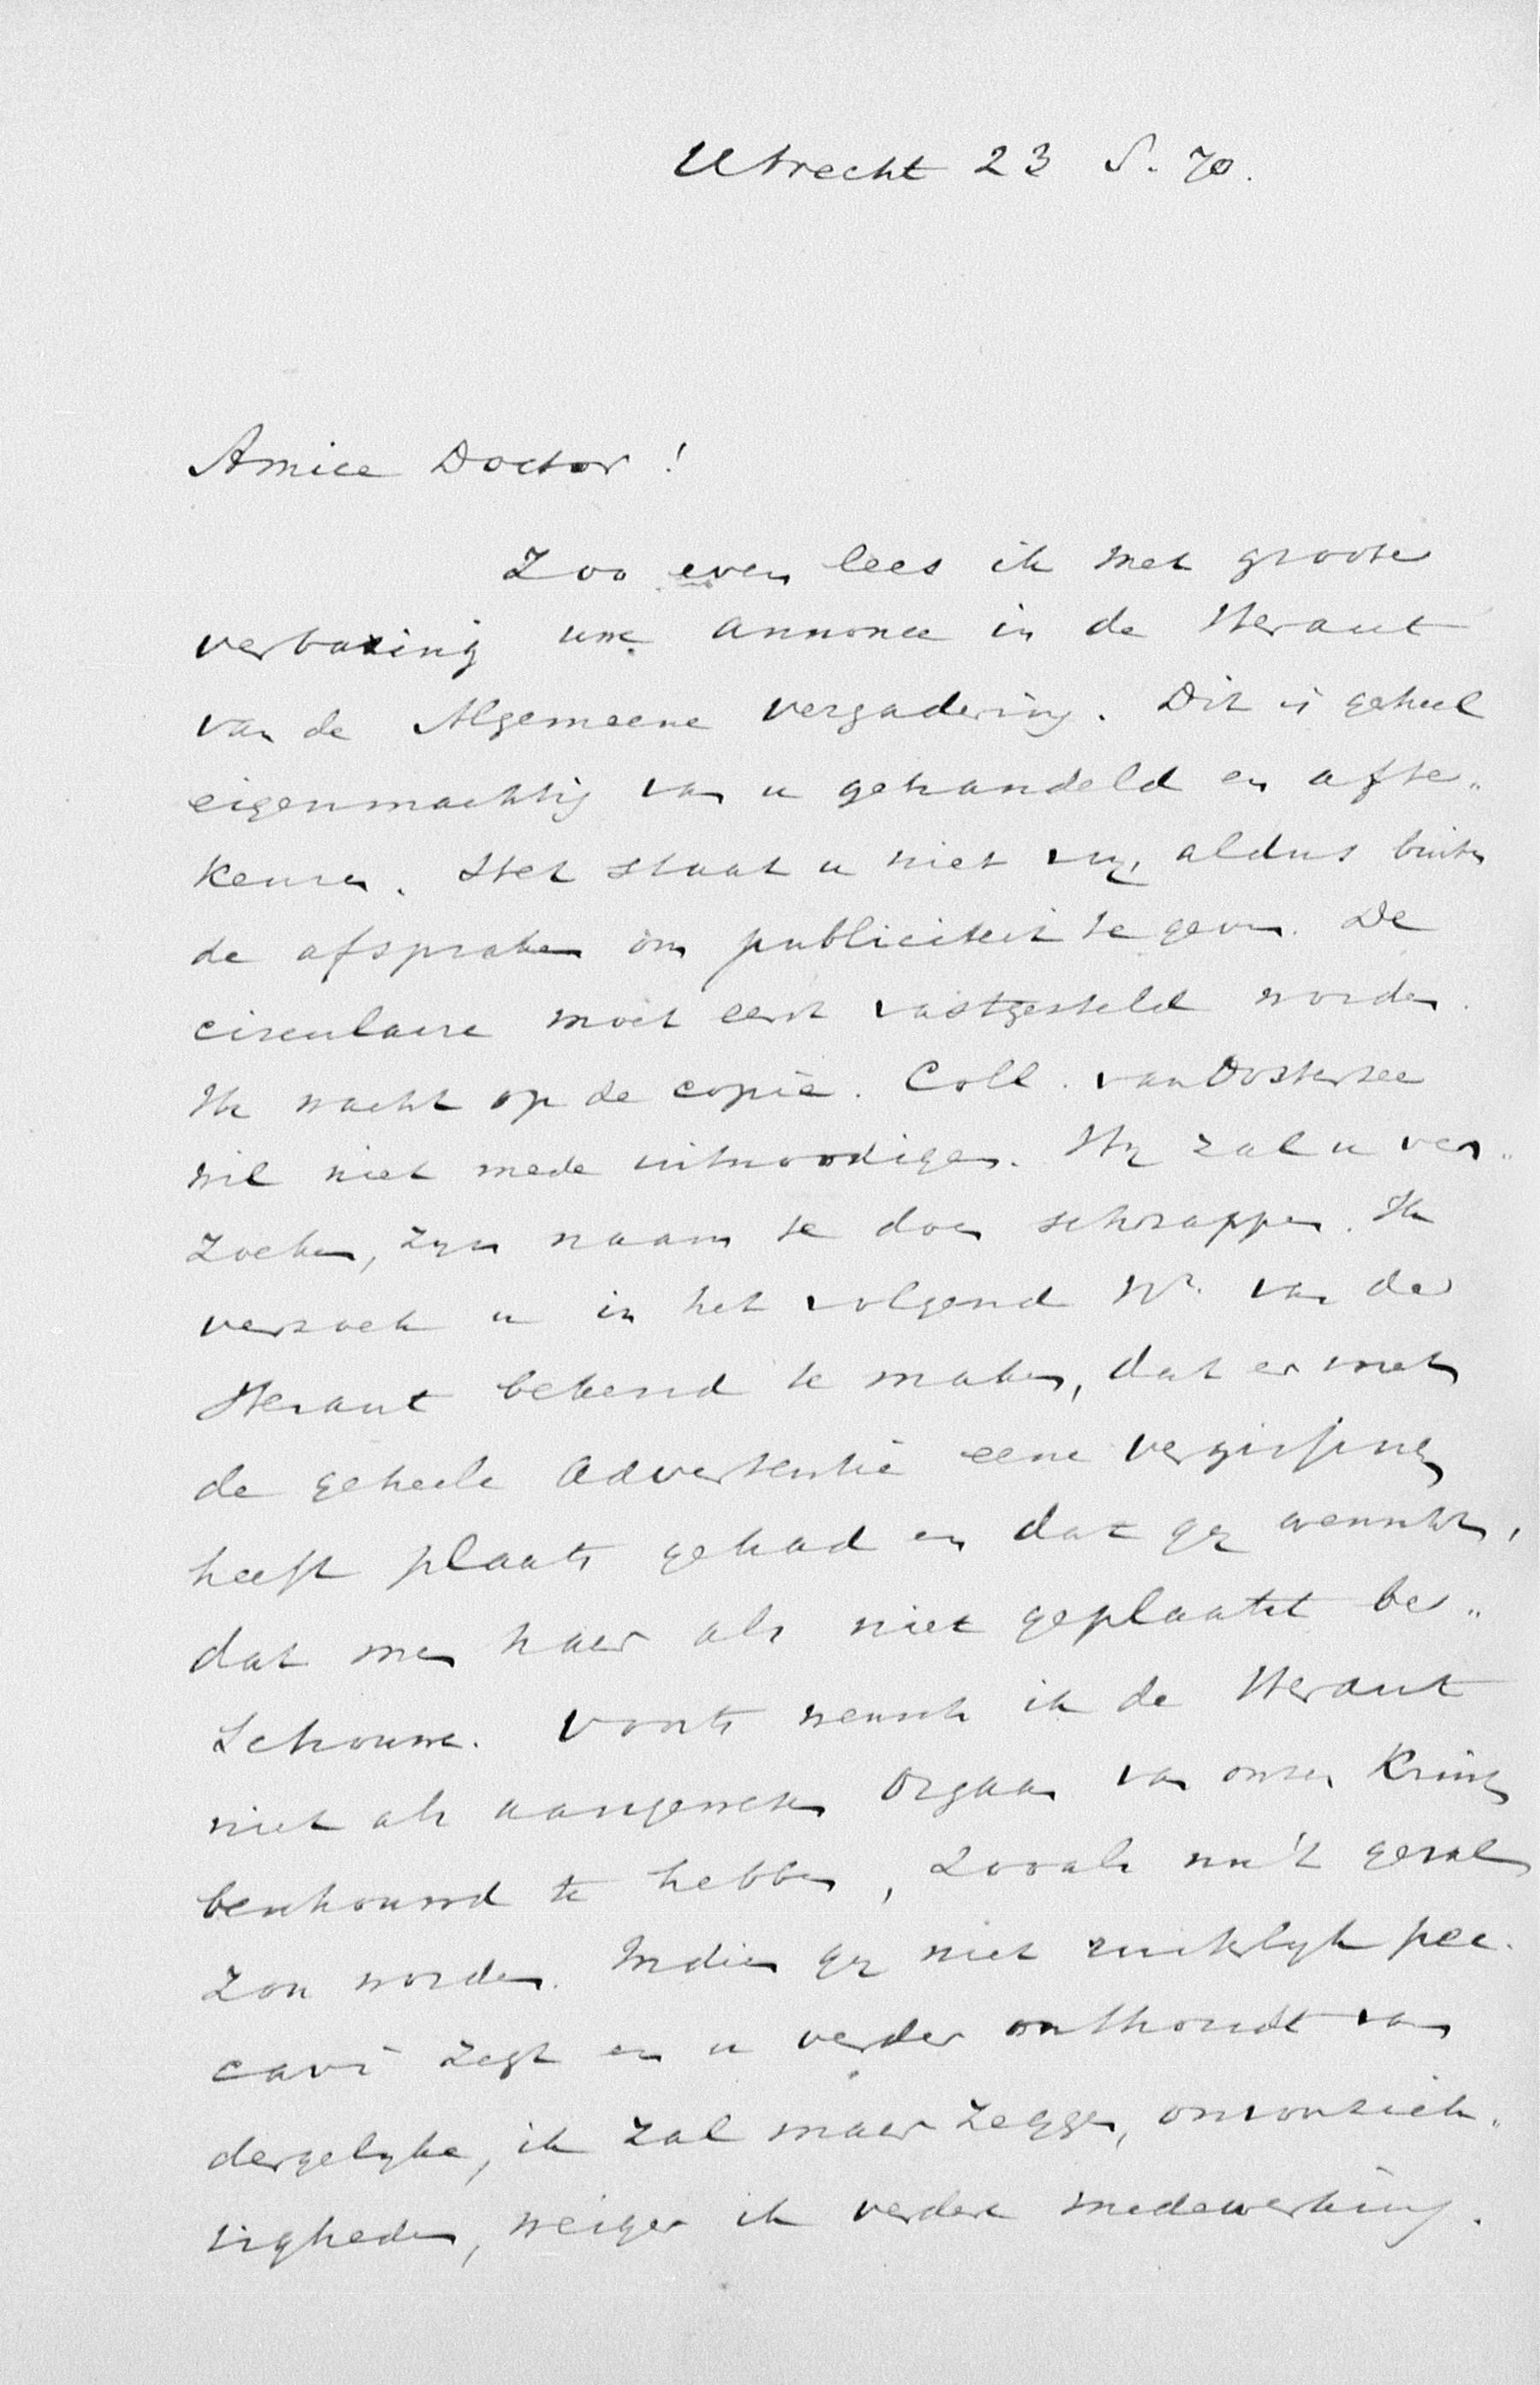 Utrecht 23 S. 70.
Amice Doctor!
Zoo even lees ik met groote
verbazing uwe annonce in de Heraut
van de Algemeene vergadering. Dit is geheel
eigenmachtig van u gehandeld en afte„
keuren. Het staat u niet vrij, aldus buiten
de afspraken om publiciteit te geven. De
circulaire moet eerst vastgesteld worden.
Ik wacht op de copie. Coll. van Oosterzee
wil niet mede uitnoodigen. Hij zal u ver„
zoeken, zijn naam te doen schrappen. Ik
verzoek u in het volgend Nr. van de
Heraut bekend te maken, dat er met
de geheele advertentie eene vergissing
heeft plaats gehad en dat gij wenscht,
dat men haar als niet geplaatst be„
schouwe. Voorts wensch ik de Heraut
niet als aangewezen orgaan van onzen Kring
beschouwd te hebben, zooals nu 't geval
zou worden. Indien gij niet ruiterlijk pec.
cavi zegt en u verder onthoudt van
dergelijke, ik zal maar zeggen, onvoorzich„
tigheden, weiger ik verdere medewerking.